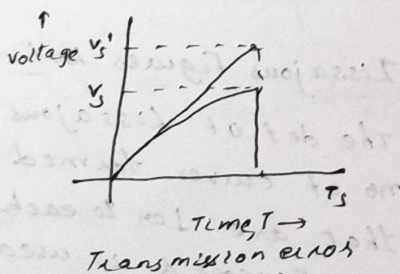 ↑
voltage
Vs'
Vs
Ts
Time, T →
Transmission error